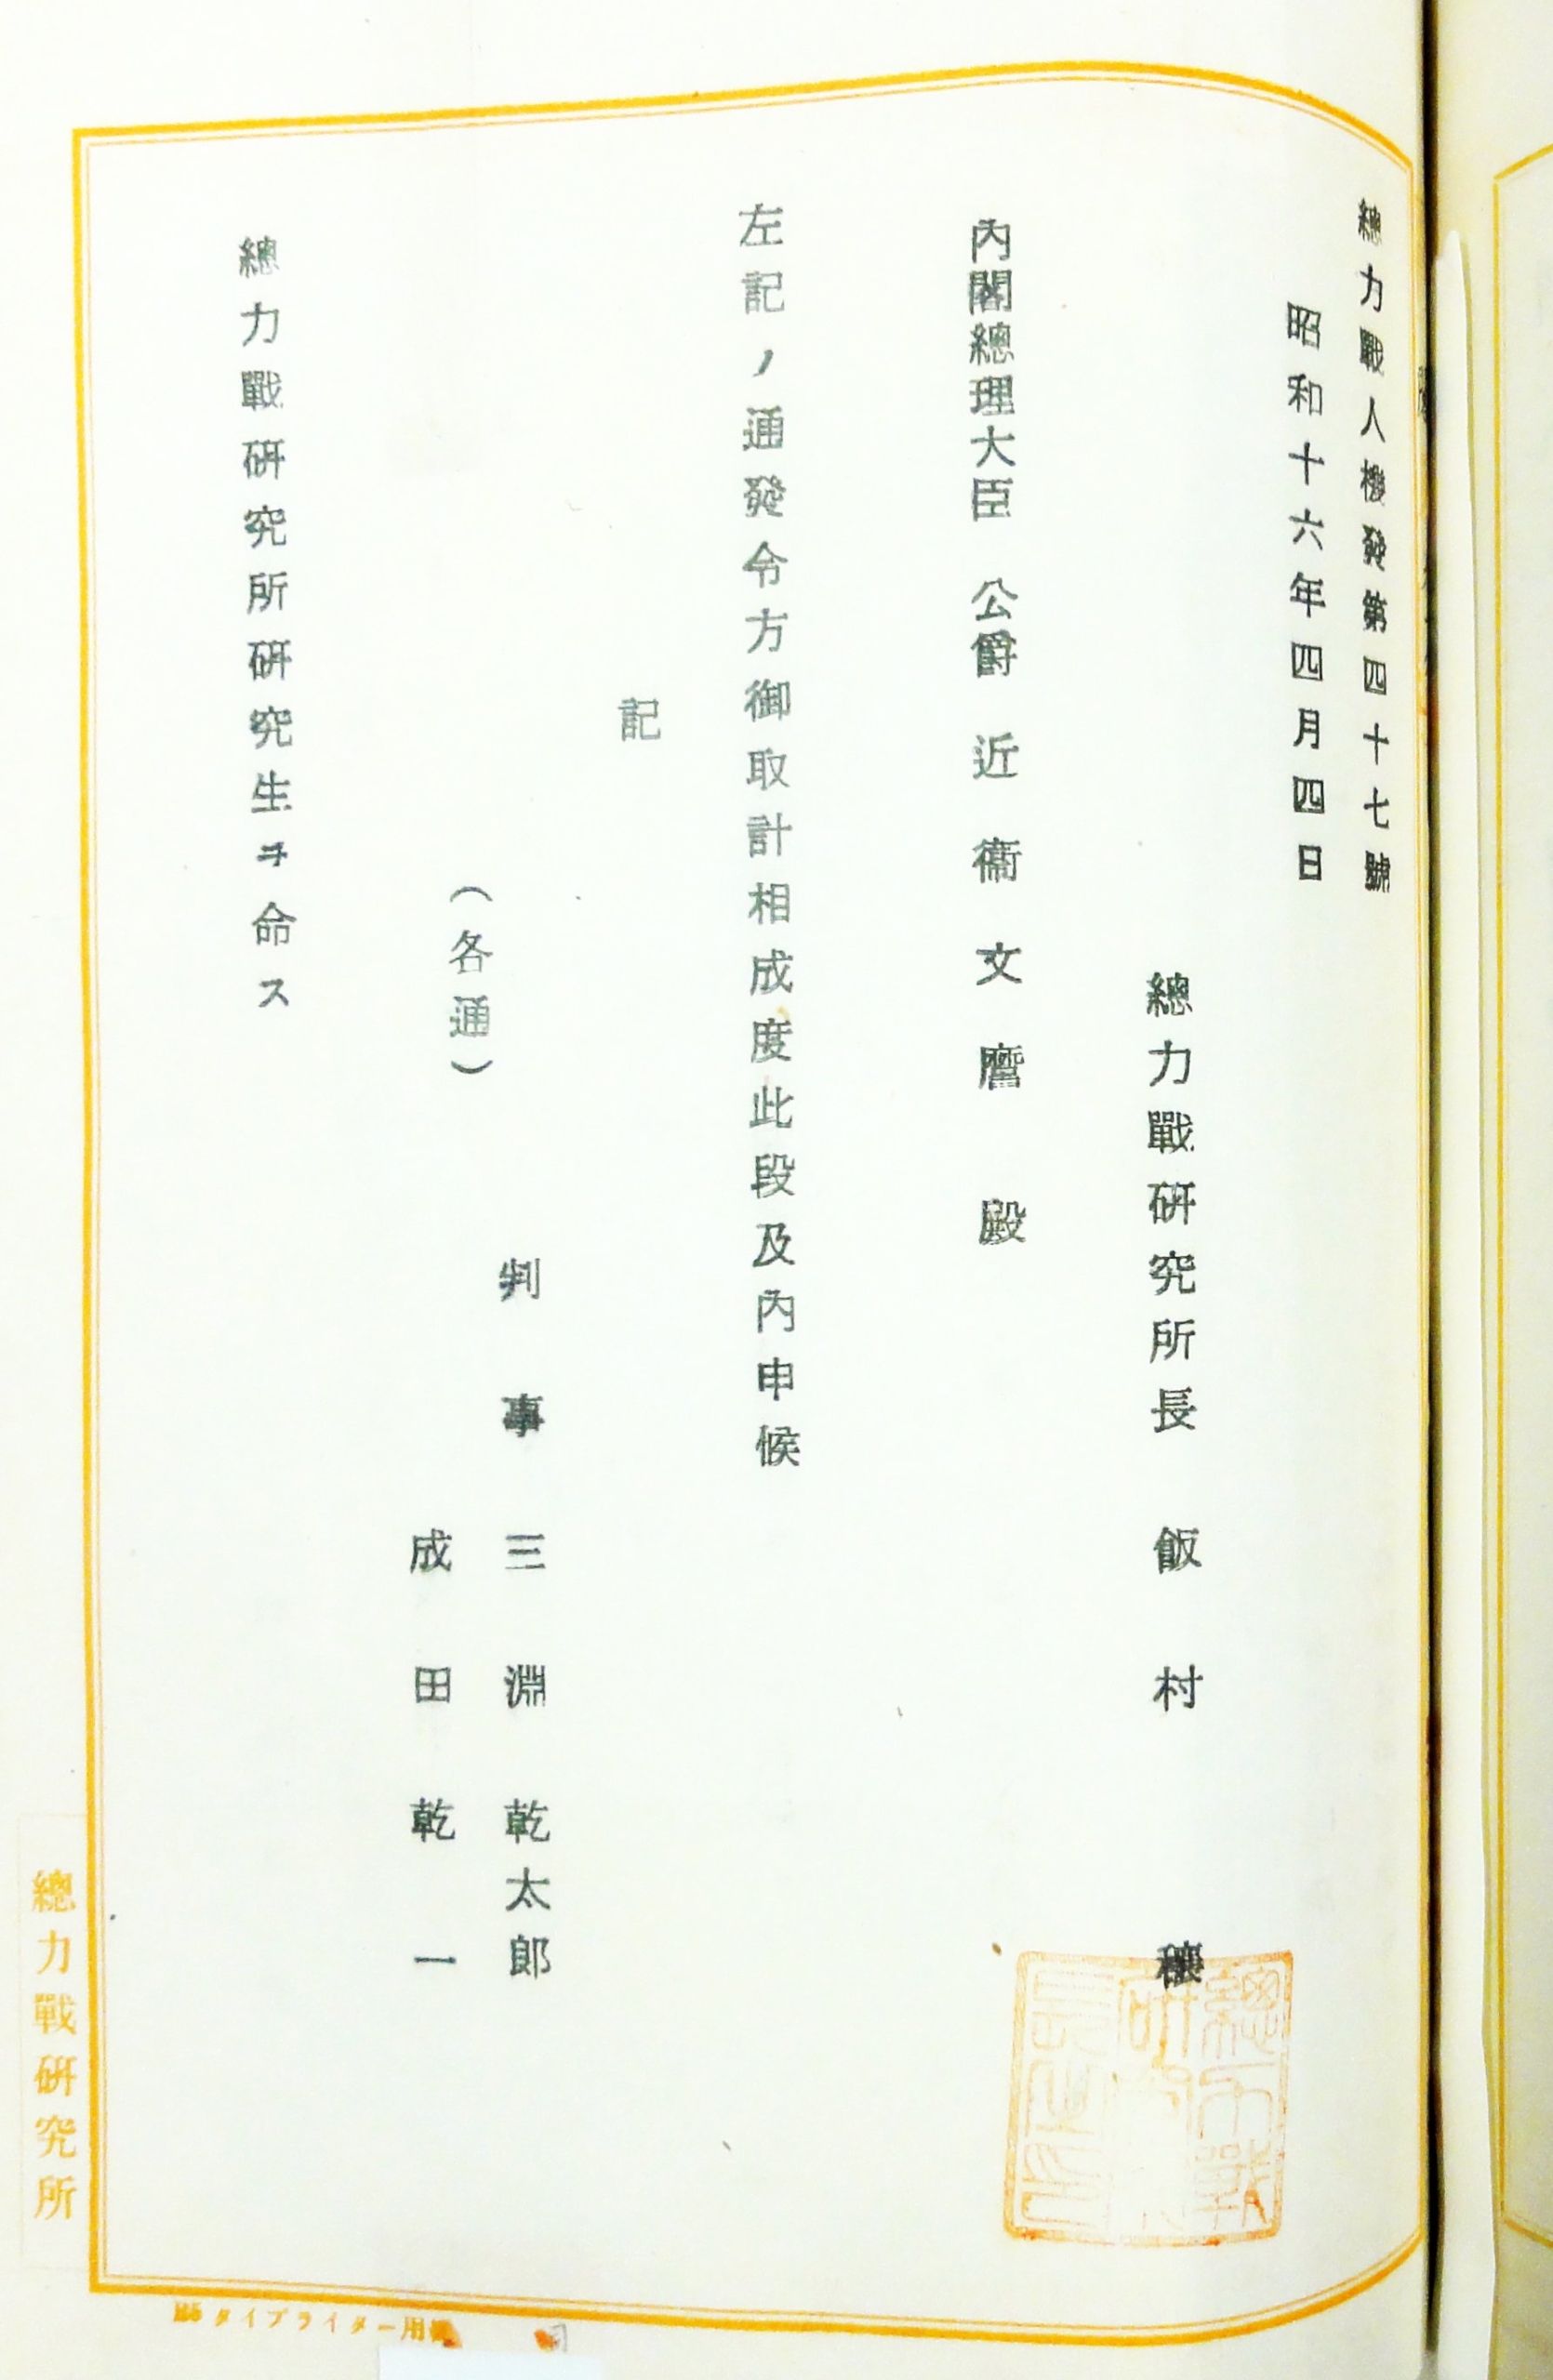 總力戰人機發第四十七號
昭和十六年四月四日
總力戰硏究所長 飯村 穰
內閣總理大臣 公爵 近衞文麿 殿
左記ノ通發令方御取計相成度此段及內申候
記
判事 三淵乾太郎
(各通)
成田乾一
總力戰硏究所硏究生ヲ命ス
總力戰硏究所
B5タイプライター用